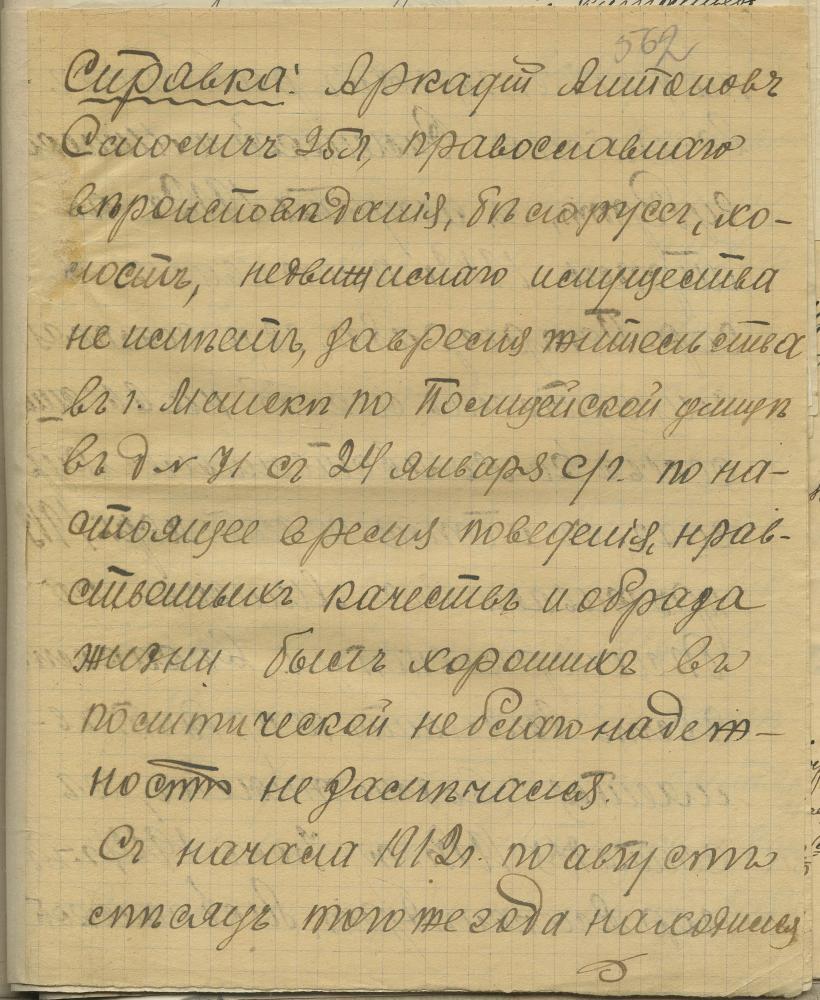 562
Справка: Аркадій Антоновъ
Смоличъ 25л, православнаго
вѣроисповѣданія, бѣлоруссъ, хо-
лостъ, недвижимаго имущества
не имѣетъ, за время жительства
въ г. Минскѣ по Полицейской улицѣ
въ д № 71 съ 24 января с/г. по на-
стоящее время поведенія, нрав-
ственныхъ качествъ и образа
жизни былъ хорошихъ въ
политической неблагонадеж-
ность не замѣчался.
Съ начала 1912г. по августъ
мѣсяцъ того же года находился